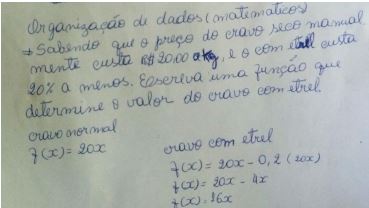 Organização de dados (matematicos)
→ Sabendo que o preço do cravo seco manual
mente custa R$ 20,00 o kg, e o com etrel custa
20% a menos. Escreva uma função que
determine o valor do cravo com etrel.
cravo normal
f(x) = 20x
cravo com etrel
f(x) = 20x - 0,2 (20x)
f(x) = 20x - 4x
f(x) = 16x